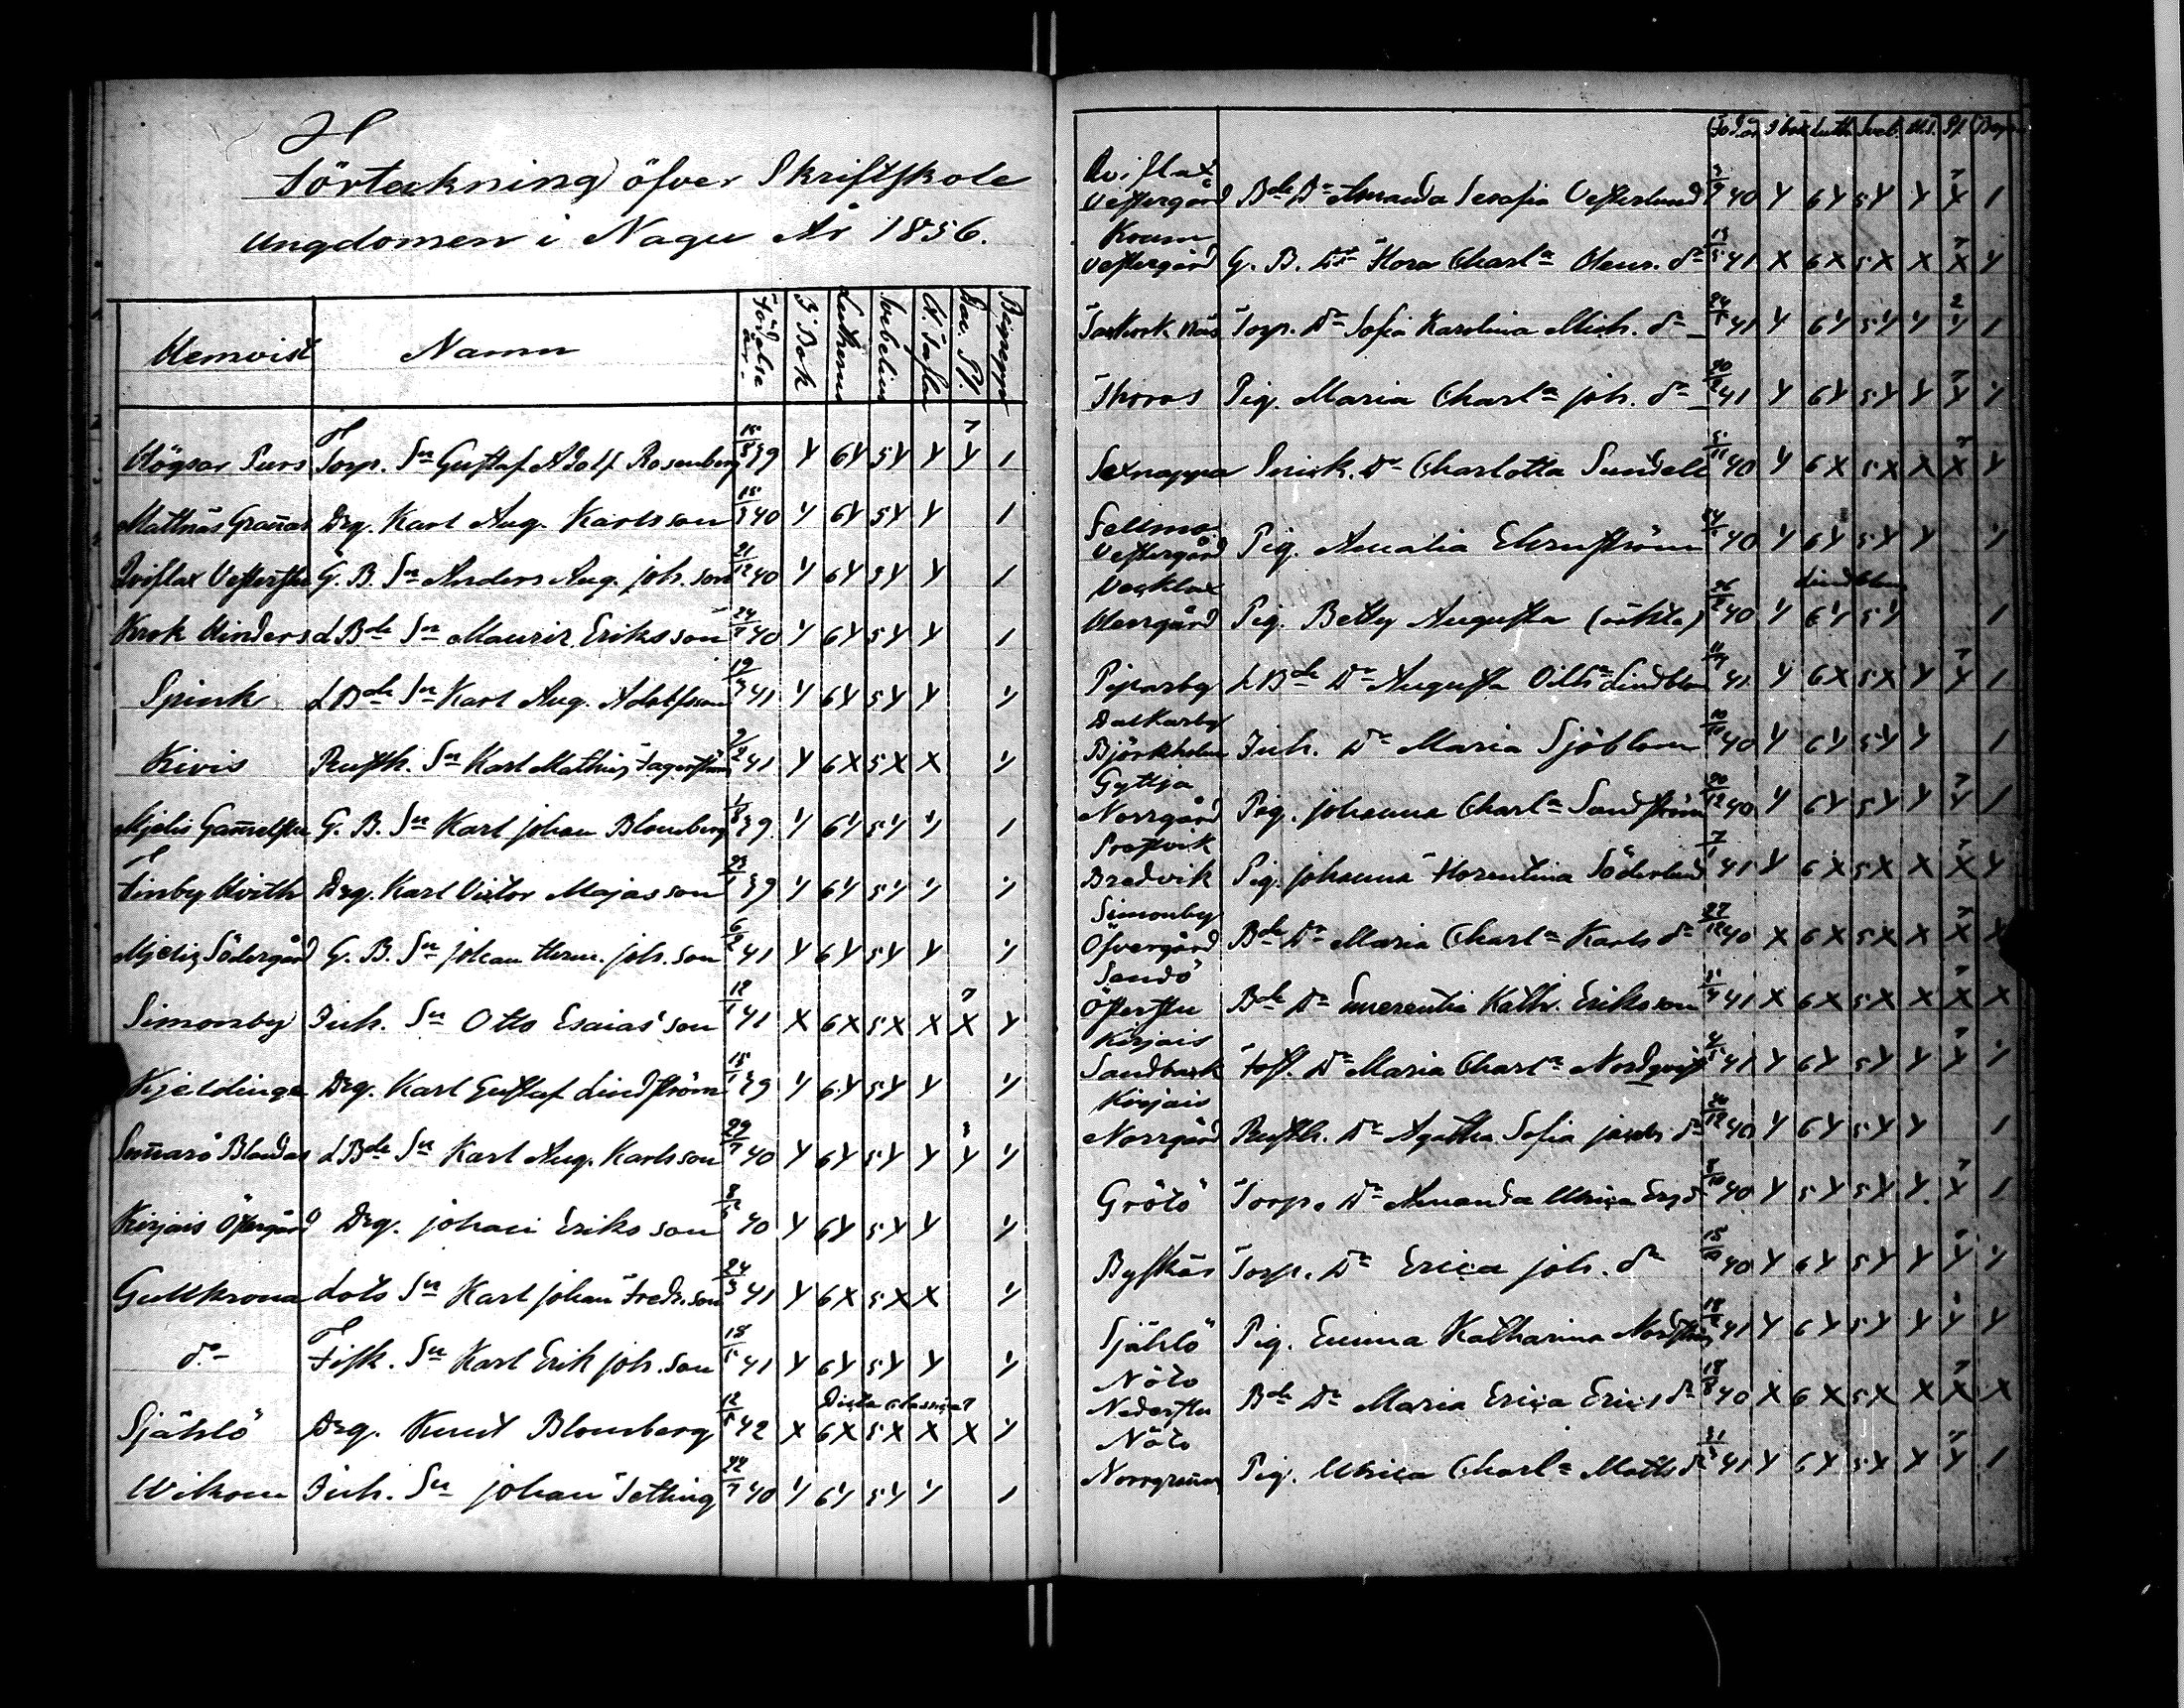 Förteckning öfver Skriftskole
ungdomen i Nagu År 1856.
Hemvist Namn Födelse år. I Bok Lutherus Svebelius H. Tafla Dav. Ps. Begreppet
Högsar Purs Torp. Sn Gustaf Adolf Rosenberg 39 Y 6Y 5Y Y Y 1
Mattnäs Grannas Drg. Karl Aug. Karlsson 15/3 40 Y 6Y 5Y Y 1
Qviflax G. B. Sn Anders Aug. joh. son 21/12 40 Y 6Y 5Y Y 1
Krok Hinders LBde Sn Mauriz Eriksson 40 Y 6Y 5Y Y 1
Spink LBde Sn Karl Aug. Adolfsson 19/3 41 Y 6Y 5Y Y Y
Kivis Rusth. Sn Karl Mathias Fagerström 41 Y 6X 5X X Y
Mjelis G. B. Sn Karl johan Blomberg 39 Y 6Y 5Y Y 1
Finby Drg. Karl Victor Majasson 39 Y 6Y 5Y Y Y
Mjelis Södergård G. B. Sn johan Herm. joh. son 6/2 41 Y 6Y 5Y Y Y
Simonby Inh. Sn Otto Esaias son 41 X 6X 5X X X Y
Kjeldinge Drg. Karl Gustaf Lindström 39 Y 6Y 5Y Y Y
Blondas LBde Sn Karl Aug. Karlsson 29/7 40 Y 6Y 5Y Y Y Y
Kirjais Östergård Drg. johan Eriksson 40 Y 6Y 5Y Y Y
Gullkrona Lots Sn Karl johan Fredr. son 24/3 41 Y 6X 5X X Y
do Fisk. Sn Karl Erik joh. son 41 Y 6Y 5Y Y Y
Själö Drg. Knut Blomberg 42 X 6X 5X X X Y
Wikom Inh. Sn johan Tetting 22/7 40 Y 6Y 5Y Y 1
Föd. år I bok Luth. Sveb. H.T. Ps. Begr.
Qviflax
Vestergård Bde Dr Amanda Serafia Vesterlund 40 Y 6Y 5Y Y Y 1
Kram
Vestergård G. B. Dr Flora Charla Henr. dr 41 X 6X 5X X X Y
Torp. Dr Sofia Karolina Mich. dr 41 Y 6Y 5Y Y Y 1
Thoras Pig. Maria Charla joh. dr 41 Y 6Y 5Y Y Y Y
Sexnappa Dr Charlotta Sundell 40 Y 6X 5X X X Y
Vestergård Pig. Amalia Ehrnström 40 Y 6Y 5Y Y Y
Lindblom
Norrgård Pig. Betty Augusta (oäkta) 40 Y 6Y 5Y 1
Piparby LBde Dr Augusta Lindblom 41 Y 6X 5X Y Y 1
Dalkarby
Björkholm Inh. Dr Maria Sjöblom 40 Y 6Y 5Y Y 1
Gyttja
Norrgård Pig. johanna Charla Sandström 20/12 40 Y 6Y 5Y Y Y 1
Prostvik
Bredvik Pig. johanna Florentina Söderlund 41 Y 6X 5X X X Y
Simonby
Öfvergård Bde Dr Maria Charla Karls dr 27/12 40 X 6X 5X X X X
Sandö
Bde Dr Emerentia Kath. Eriksson 41 X 6X 5X X X X
Kirjais
Sandback Dr Maria Charla Nordqvist 41 Y 6Y 5Y Y Y Y
Kirjais
Norrgård Rusth. Dr Agatha Sofia jacobs dr 40 Y 6Y 5Y Y 1
Grötö Torp. Dr Amanda Ulrica 40 Y 5Y 5Y Y Y 1
Byskär Torp. Dr Erica joh. dr 40 Y 6Y 5Y Y Y Y
Själö Pig. Emma Katharina 41 Y 6Y 5Y Y Y Y
Nötö
Bde Dr Maria Erica Erics dr 18/8 40 X 6X 5X X X X
Nötö
Pig. Ulrica Charla Matts dr 41 Y 6Y 5Y Y Y 1